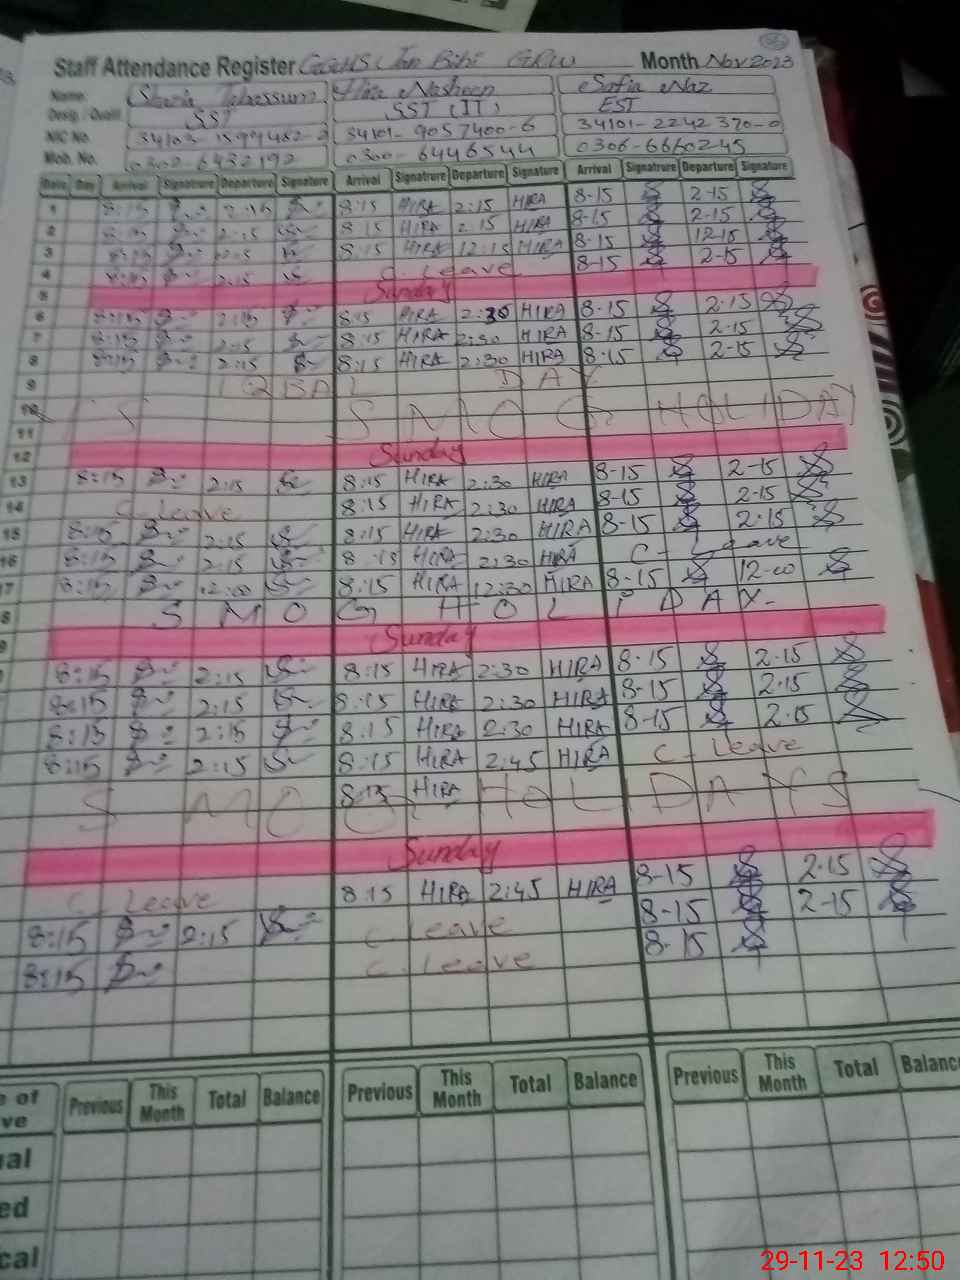 Staff Attendance Register GGHS Jan Bibi GRW Month Nov 2023
Name. Shazia Tabassum Hira Nasheen Sofia Naz
Desig. / Qualif. SST SST (IT) EST
NIC No. 34101-9057400-6 34101-2242370-0
Mob. No. 0302-6432192 0300-6446544 0306-6660245
Date Day Arrival Signatrure Departure Signature Arrival Signatrure Departure Signature Arrival Signatrure Departure Signature
1 8:15 2:15 8:15 HIRA 2:15 HIRA 8-15 2-15
2 8:15 2:15 8:15 HIRA 2:15 HIRA 8-15 2-15
3 8:15 8:15 HIRA 12:15 HIRA 8-15 12-15
4 8:15 2:15 C. Leave 8-15 2-15
5 Sunday
6 8:15 2:15 8:15 HIRA 2:30 HIRA 8-15 2-15
7 8:15 2:15 8:15 HIRA 2:30 HIRA 8-15 2-15
8 8:15 2:15 8:15 HIRA 2:30 HIRA 8-15 2-15
9 IQBAL DAY
10 SMOG HOLIDAY
11
12 Sunday
13 8:15 2:15 8:15 HIRA 2:30 HIRA 8-15 2-15
14 C. leave 8:15 HIRA 2:30 HIRA 8-15 2-15
15 8:15 2:15 8:15 HIRA 2:30 HIRA 8-15 2-15
16 8:15 2:15 8:15 HIRA 2:30 HIRA C- Leave
17 8:15 12:00 8:15 HIRA 12:30 HIRA 8-15 12-00
8 SMOG HOLIDAY-
9 Sunday
8:15 2:15 8:15 HIRA 2:30 HIRA 8-15 2-15
8:15 2:15 8:15 HIRA 2:30 HIRA 8-15 2-15
8:15 2:15 8:15 HIRA 2:30 HIRA 8-15 2-15
8:15 2:15 8:15 HIRA 2:45 HIRA C- Leave
8:15 HIRA
SMOG HOLIDAYS
Sunday
C. Leave 8:15 HIRA 2:45 HIRA 8-15 2-15
8:15 2:15 C. Leave 8-15 2-15
8:15 C. Leave 8-15
e of Previous This Month Total Balance Previous This Month Total Balance Previous This Month Total Balance
ve
ual
ed
cal
29-11-23 12:50